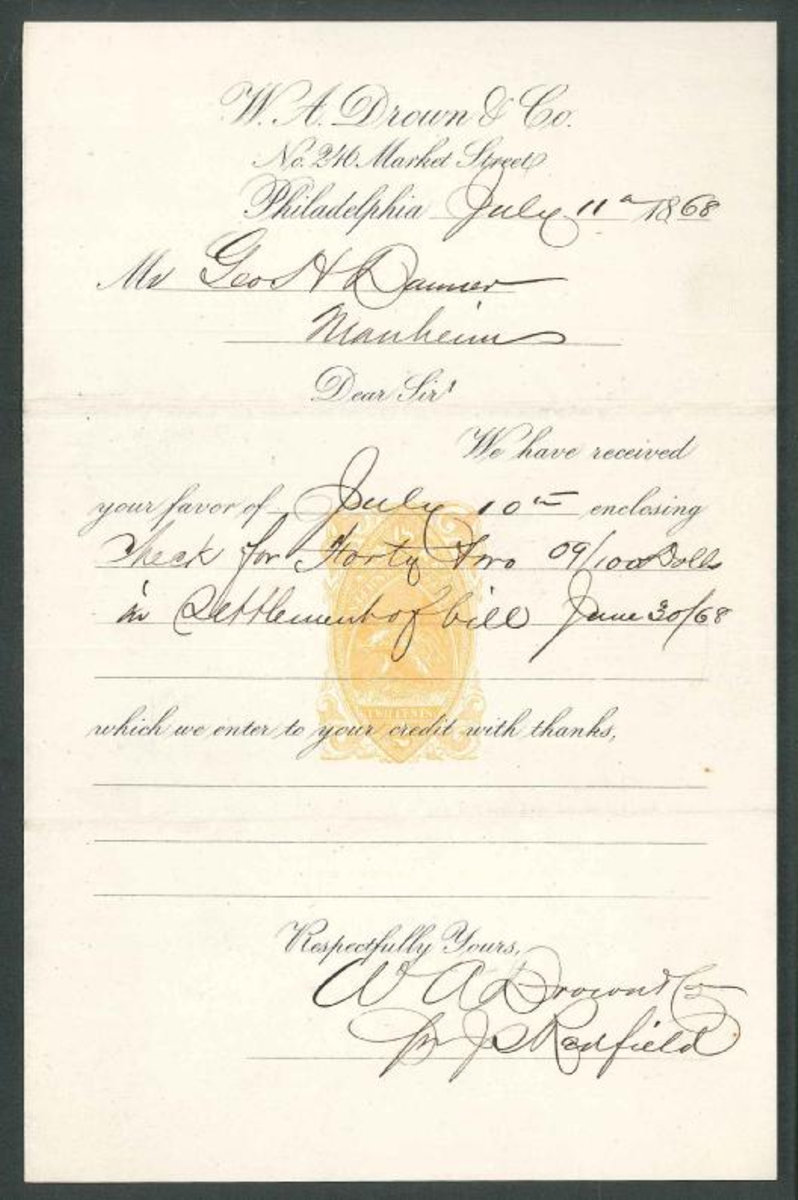 W. A. Drown & Co.
No. 246 Market Street
Philadelphia July 11th 1868
Mr Geo H Danner
Manheim
Dear Sir
We have received
your favor of July 10th enclosing
Check for Forty two 09/100 Dolls
in Settlement of bill June 30/68
TWO CENTS
which we enter to your credit with thanks,
Respectfully Yours,
W A Drown & Co
pr J S Redfield